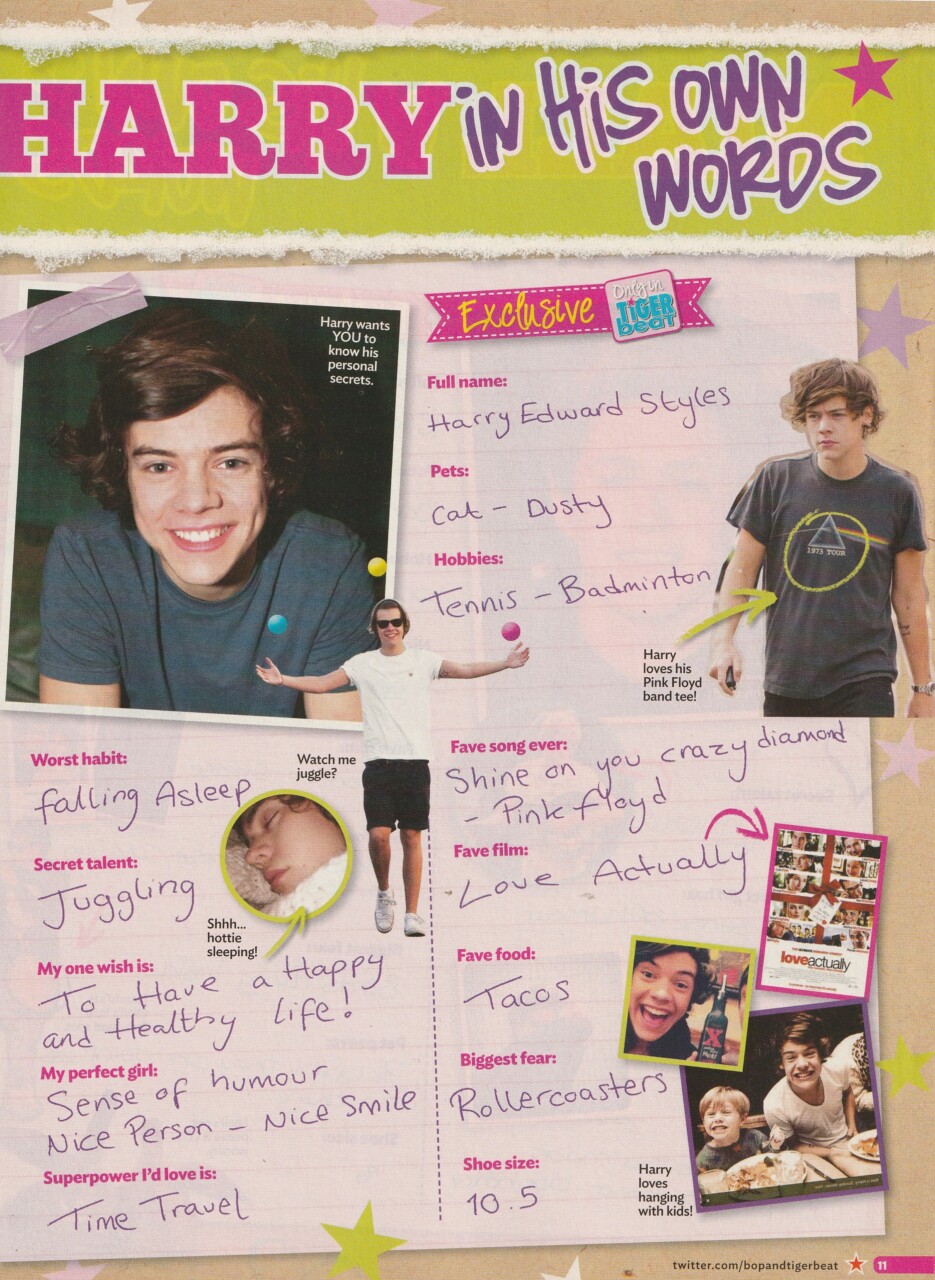 HARRY in His OWN
WORDS
Harry wants
YOU to
know his
personal
secrets.
Exclusive
Only in
TiGER
beat
Full name:
Harry Edward Styles
Pets:
Cat - Dusty
Hobbies:
Tennis - Badminton
1973 TOUR
Harry
loves his
Pink Floyd
band tee!
Worst habit:
falling Asleep
Watch me
juggle?
Secret talent:
Juggling
Shhh...
hottie
sleeping!
My one wish is:
To Have a Happy
and Healthy life!
My perfect girl:
Sense of humour
Nice Person - Nice Smile
Superpower I'd love is:
Time Travel
Fave song ever:
Shine on you crazy diamond
- Pink floyd
Fave film:
Love Actually
loveactually
Fave food:
Tacos
X
Biggest fear:
Rollercoasters
Shoe size:
10.5
Harry
loves
hanging
with kids!
twitter.com/bopandtigerbeat
11